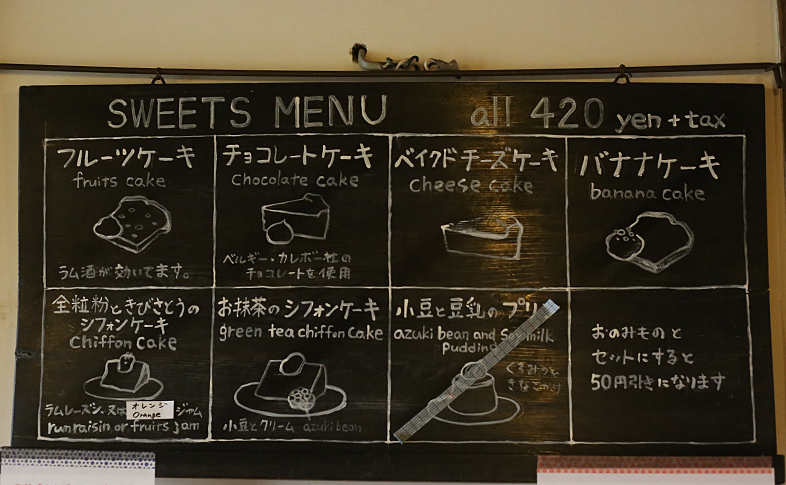 SWEETS MENU all 420 yen + tax
フルーツケーキ
fruits cake
ラム酒が効いてます。
チョコレートケーキ
chocolate cake
ベルギー・カレボー社の
チョコレートを使用
ベイクドチーズケーキ
cheese cake
バナナケーキ
banana cake
全粒粉ときびさとうの
シフォンケーキ
chiffon cake
ラムレーズン、又は オレンジ ジャム
orange
rum raisin or fruits jam
お抹茶のシフォンケーキ
green tea chiffon cake
小豆とクリーム azuki bean
小豆と豆乳のプリ
azuki bean and soy milk
pudding
くろみつと
きなこつき
おのみものと
セットにすると
50円引きになります